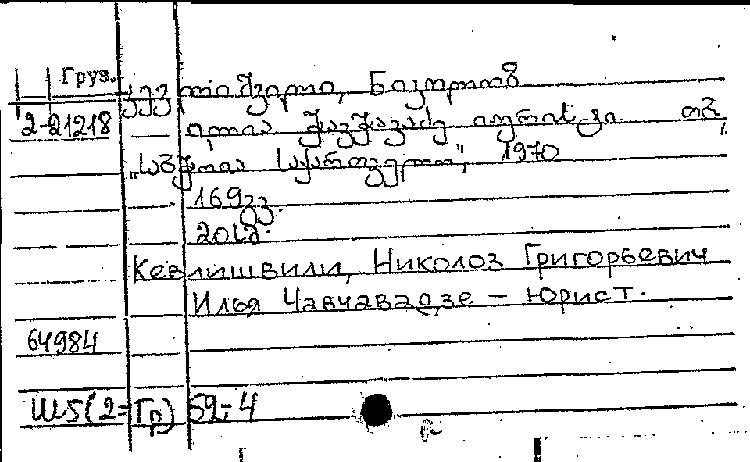 Груз.
ქევლიშვილი, ნიკოლოზ
2-21218
ილია ჭავჭავაძე იურისტი. თბ.,
„საბჭოთა საქართველო", 1970
169 გვ.
Кевлишвили, Николоз Григорьевич
Илья Чавчавадзе – юрист.
64984
Ш5(2=Гр) 52-4